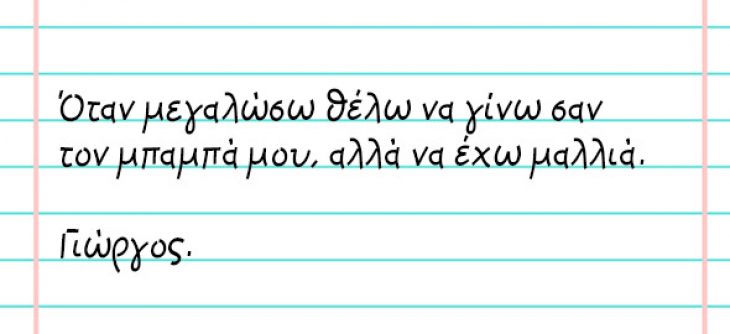 Όταν μεγαλώσω θέλω να γίνω σαν
τον μπαμπά μου, αλλά να έχω μαλλιά.
Γιώργος.